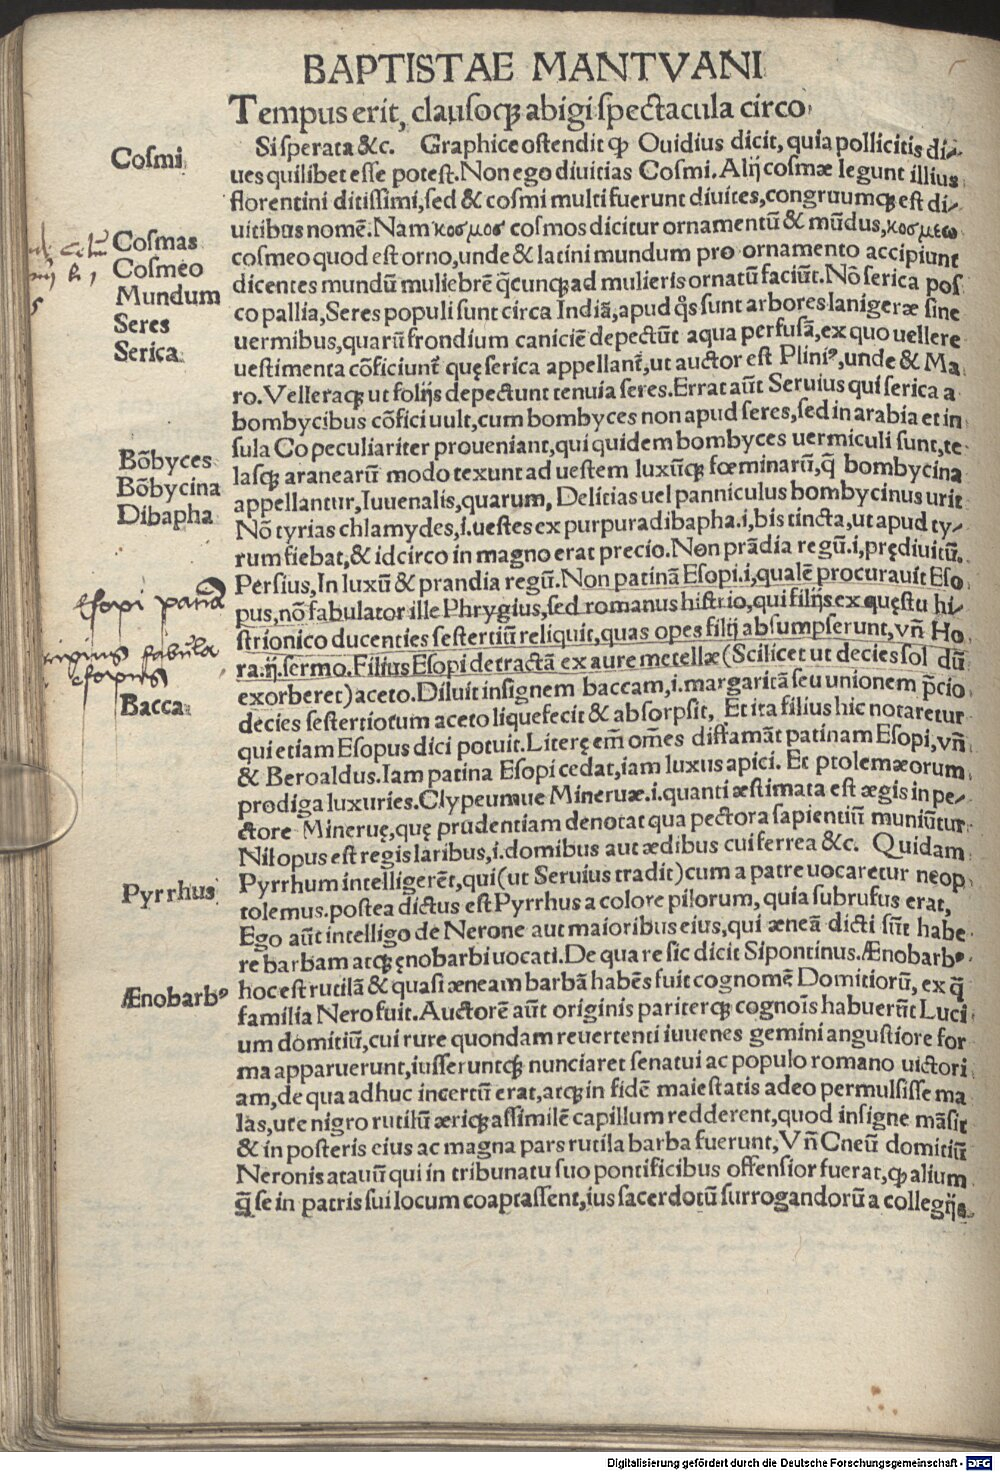 BAPTISTAE MANTVANI
Tempus erit, clausoqꝫ abigi spectacula circo
Cosmi
Si sperata &c. Graphice ostendit ꝙ Ouidius dicit, quia pollicitis di-
ues quilibet esse potest. Non ego diuitias Cosmi. Alij cosmæ legunt illius
florentini ditissimi, sed & cosmi multi fuerunt diuites, congruumqꝫ est di-
uitibus nomē. Nam κοσμος cosmos dicitur ornamentū & mūdus, κοσμεω
Cosmas
cosmeo quod est orno, unde & latini mundum pro ornamento accipiunt
Cosmeo
dicentes mundū muliebrē q̄cunqꝫ ad mulieris ornatū faciūt. Nō serica pos
Mundum
co pallia, Seres populi sunt circa Indiā, apud q̊s sunt arbores lanigeræ sine
Seres
uermibus, quarū frondium caniciē depectūt aqua perfusā, ex quo uellere
Serica
uestimenta cōficiunt̄ quę serica appellant̄, ut auctor est Pliniꝰ, unde & Ma
ro. Velleraqꝫ ut folijs depectunt tenuia seres. Errat aūt Seruius qui serica a
bombycibus cōfici uult, cum bombyces non apud seres, sed in arabia et in
sula Co peculiariter proueniant, qui quidem bombyces uermiculi sunt, te
Bōbyces
lasqꝫ aranearū modo texunt ad uestem luxūqꝫ fœminarū, q̄ bombycina
Bōbycina
appellantur, Iuuenalis, quarum, Delitias uel panniculus bombycinus urit
Dibapha
Nō tyrias chlamydes, i. uestes ex purpura dibapha. i, bis tincta, ut apud ty-
rum fiebat, & idcirco in magno erat precio. Non prādia regū. i, prędiuitū.
Persius, In luxū & prandia regū. Non patinā Esopi. i, qualē procurauit Eso
esopi patina
pus, nō fabulator ille Phrygius, sed romanus histrio, qui filijs ex quęstu hi-
strionico ducenties sestertiū reliquit, quas opes filij absumpserunt, vñ Ho
fabula
esopus
ra. ij. sermo. Filius Esopi detractā ex aure metellæ (Scilicet ut decies sol dū
exorberet) aceto. Diluit insignem baccam, i. margaritā seu unionem p̄cio
Bacca
decies sestertiotum aceto liquefecit & absorpsit, Et ita filius hic notaretur
qui etiam Esopus dici potuit. Literę em̄ om̄es diffamāt patinam Esopi, vñ
& Beroaldus. Iam patina Esopi cedat, iam luxus apici. Et ptolemæorum
prodiga luxuries. Clypeumue Mineruæ. i. quanti æstimata est ægis in pe-
ctore Mineruę, quę prudentiam denotat qua pectora sapientiū muniūtur
Nil opus est regis laribus, i. domibus aut ædibus cui ferrea &c. Quidam
Pyrrhus
Pyrrhum intelligerēt, qui (ut Seruius tradit) cum a patre uocaretur neop
tolemus. postea dictus est Pyrrhus a colore pilorum, quia subrufus erat,
Ego aūt intelligo de Nerone aut maioribus eius, qui æneā dicti sūt habe
re barbam atqꝫ ęnobarbi uocati. De qua re sic dicit Sipontinus. Ænobarbꝰ
Ænobarbꝰ
hoc est rutilā & quasi æneam barbā habēs fuit cognomē Domitiorū, ex q̄
familia Nero fuit. Auctorē aūt originis pariterqꝫ cognoīs habuerūt Luci
um domitiū, cui rure quondam reuertenti iuuenes gemini angustiore for
ma apparuerunt, iusseruntqꝫ nunciaret senatui ac populo romano uictori
am, de qua adhuc incertū erat, atqꝫ in fidē maiestatis adeo permulsisse ma
las, ut e nigro rutilū æriqꝫ assimilē capillum redderent, quod insigne māsit
& in posteris eius ac magna pars rutila barba fuerunt, Vñ Cneū domitiū
Neronis atauū qui in tribunatu suo pontificibus offensior fuerat, ꝙ alium
q̄ se in patris sui locum coaptassent, ius sacerdotū surrogandorū a collegijs
Digitalisierung gefördert durch die Deutsche Forschungsgemeinschaft - DFG